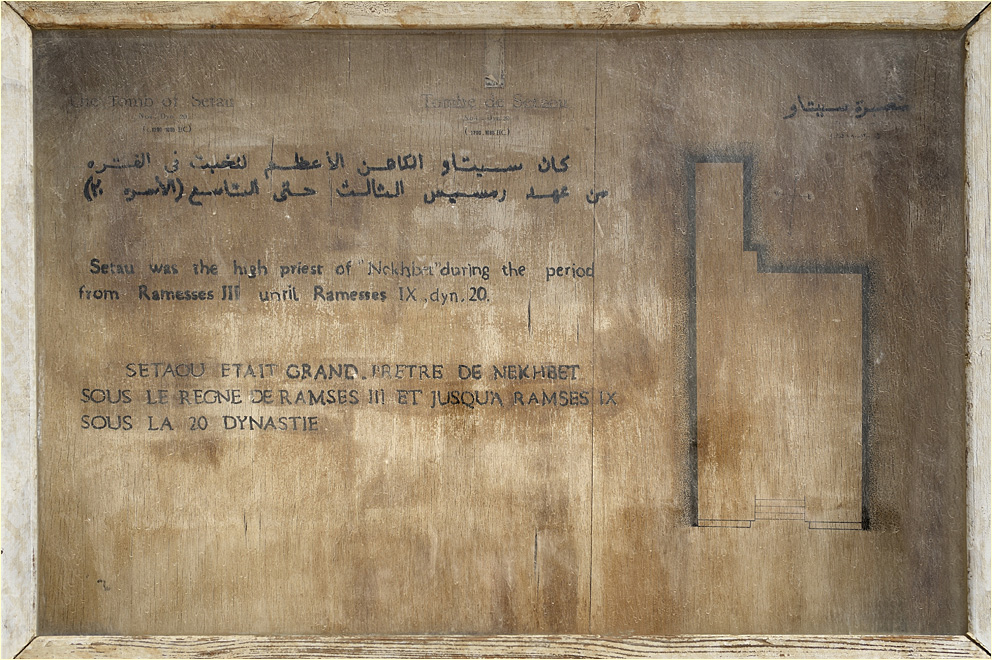 The Tomb of Setau
Tombe de Setaou
مقبرة سيتاو
كان سيتاو الكاهن الأعظم لنخبت فى الفتره
من عهد رمسيس الثالث حتى التاسع (الأسره ٢٠)
Setau was the high priest of "Nekhbet" during the period
from Ramesses III until Ramesses IX, dyn. 20.
SETAOU ETAIT GRAND PRETRE DE NEKHBET
SOUS LE REGNE DE RAMSES III ET JUSQU'A RAMSES IX
SOUS LA 20 DYNASTIE